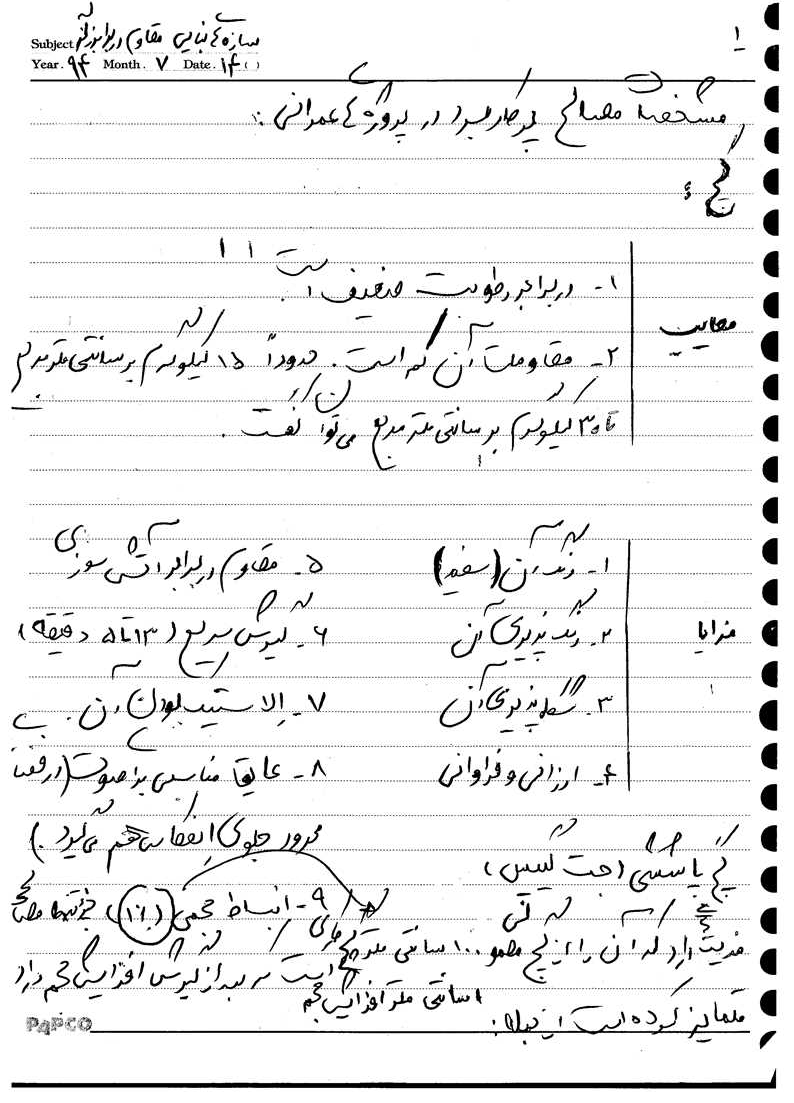 سازه‌های بنایی مقاوم در برابر زلزله
Subject
Year. ۹۴ Month. ۷ Date. ۱۴ ( )
۱
مشخصات مصالح پرکاربرد در پروژه‌های عمرانی:
گچ:
معایب
۱- در برابر رطوبت ضعیف است
۲- مقاومت آن کم است. حدوداً ۱۵ کیلوگرم بر سانتی متر مربع
تا ۳۰ کیلوگرم بر سانتی متر مربع می‌توان گفت.
مزایا
۱- رنگ آن (سفید)
۲- رنگ پذیری آن
۳- شکل پذیری آن
۴- ارزانی و فراوانی
۵- مقاوم در برابر آتش سوزی
۶- گیرش سریع (۳ تا ۵ دقیقه)
۷- الاستیک بودن آن.
۸- عایق مناسبی برای صوت (از رفت
جلوی انعکاس هم می‌گیرد.)
۹- انبساط حجمی (٪۱) تنها مصالح
است که بعد از گیرش افزایش حجم دارد
۱۰۰ سانتی متر گچ
۱ سانتی متر افزایش حجم
گچ پاششی (جت گیپس)
مزیت دارد که آن را از گچ معمولی
متمایز کرده است از جمله:
PAPCO